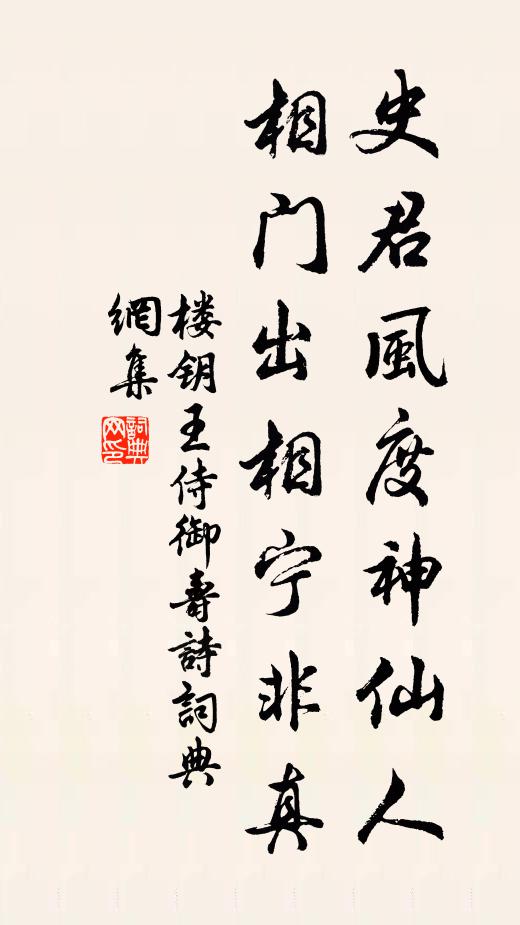 史君風度神仙人
相门出相宁非真
楼钥王侍御壽詩詞典
網集
詞典
网印